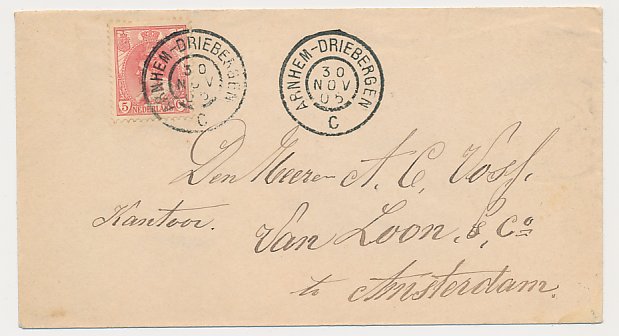 5 NEDERLAND
ARNHEM-DRIEBERGEN
30
NOV
05
C
ARNHEM-DRIEBERGEN
30
NOV
05
C
Den Heeren A. C. Voss,
Kantoor.
Van Loon & Co
te Amsterdam.